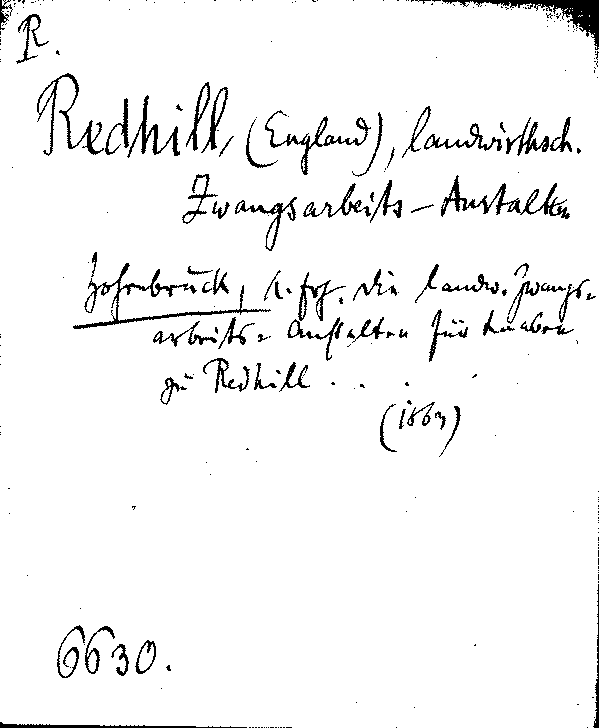 R.
Redhill, (England), landwirthsch.
Zwangsarbeits-Anstalten
Hohenbruck, die landw. Zwangs-
arbeits-Anstalten für Knaben
zu Redhill . . .
6630.